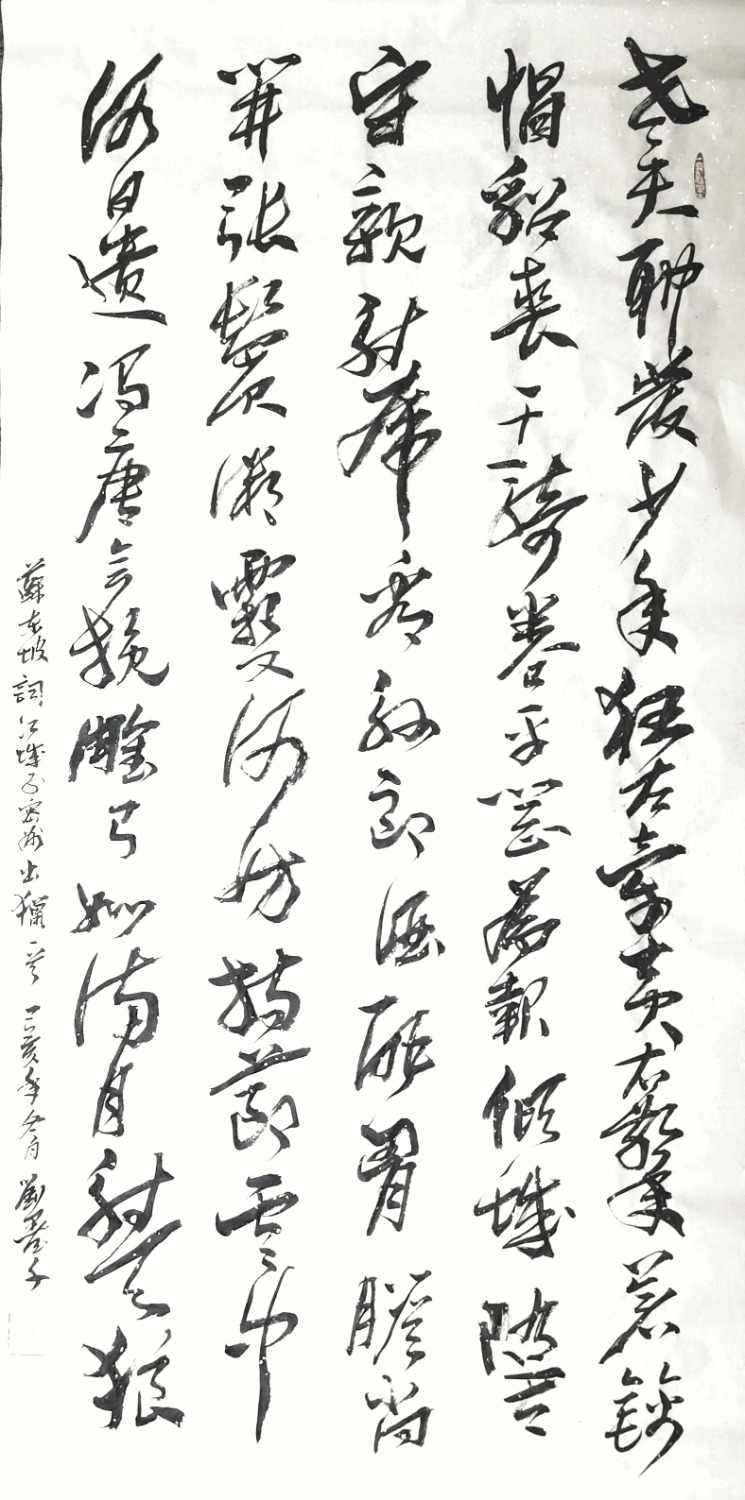 老夫聊發少年狂左牽黃右擎蒼錦
帽貂裘千騎卷平岡為報傾城隨
守親射虎看孫郎酒酣胸膽尚
開張鬢微霜又何妨持節雲中
何日遣馮唐會挽雕弓如滿月射天狼
蘇東坡詞江城子密州出獵一首 亥年 月 劉